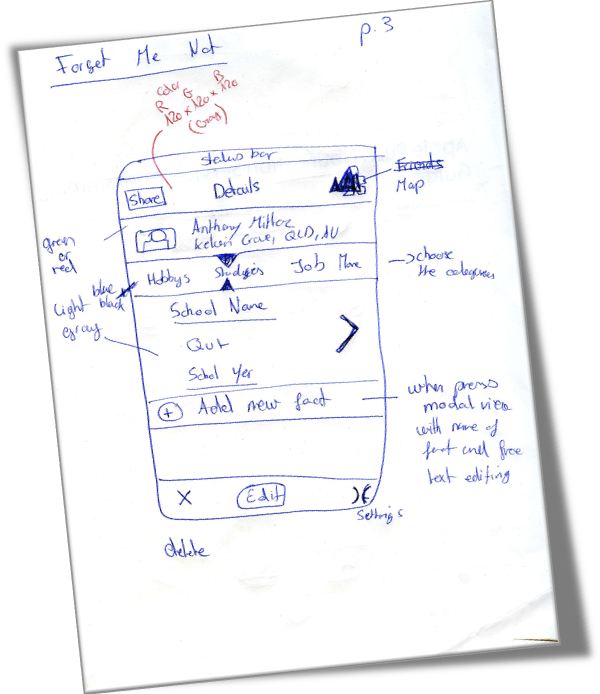 Forget Me Not
p. 3
Color
R G B
120 x 120 x 120
(Gray)
status bar
Share
Details
Friends
Map
green
or
red
Anthony
Kelvin Grove, QLD, AU
Hobbys Studies Job More
choose
the categories
blue
black
Light
gray
School Name
QUT
School Yer
+ Add new fact
when press
modal view
with name of
fact and free
text editing
X Edit
Settings
delete